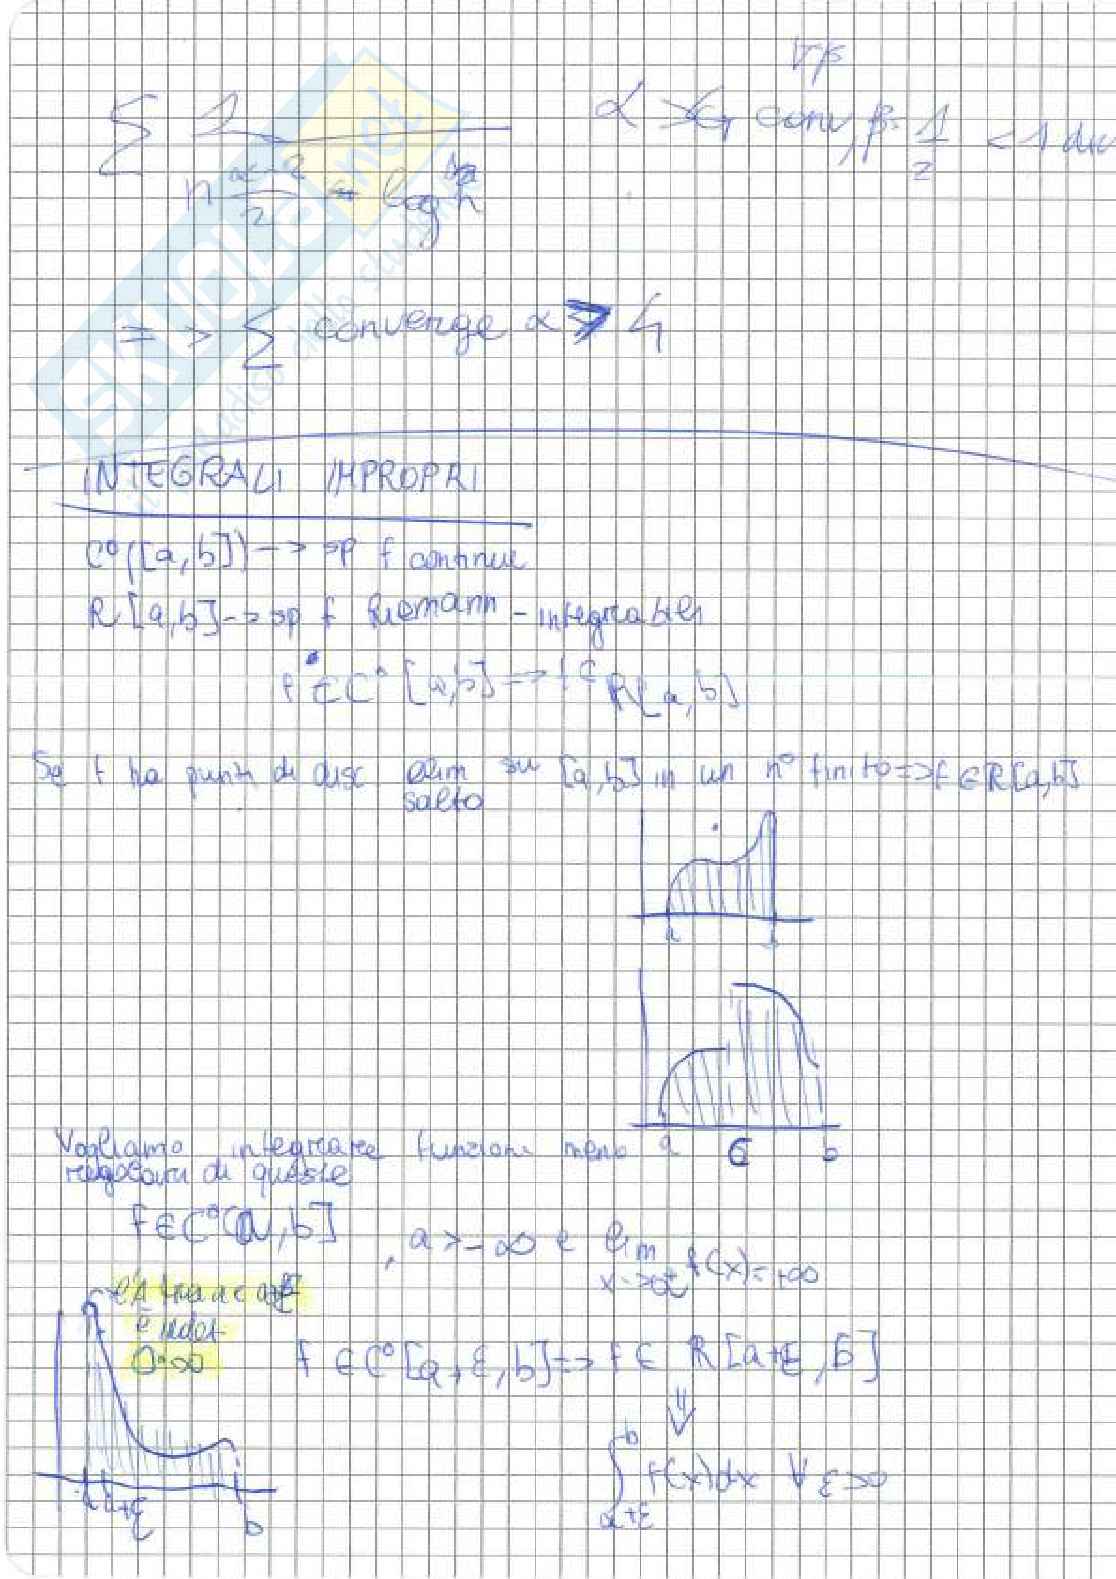 ∀β
∑ 1 / n^((α-2)/2) log n
α > 4 conv, β = 1/2 < 1 div
=> ∑ converge α > 4
INTEGRALI IMPROPRI
C⁰([a,b]) -> sp f continue
R[a,b] -> sp f Riemann-integrabili
f ∈ C⁰[a,b] => f ∈ R[a,b]
Se f ha punti di disc elim su [a,b] in un n° finito => f ∈ R[a,b]
salto
a
a c b
Vogliamo integrare funzioni meno
regolari di queste
f ∈ C⁰(a,b], a > -∞ e lim x->a⁺ f(x) = +∞
l'A tra a e a+ε
è indet
0·∞
f ∈ C⁰[a+ε,b] => f ∈ R[a+ε,b]
⇓
∫_{a+ε}^{b} f(x)dx ∀ε>0
a a+ε b
SKUOLA.net
il paradiso dello studente